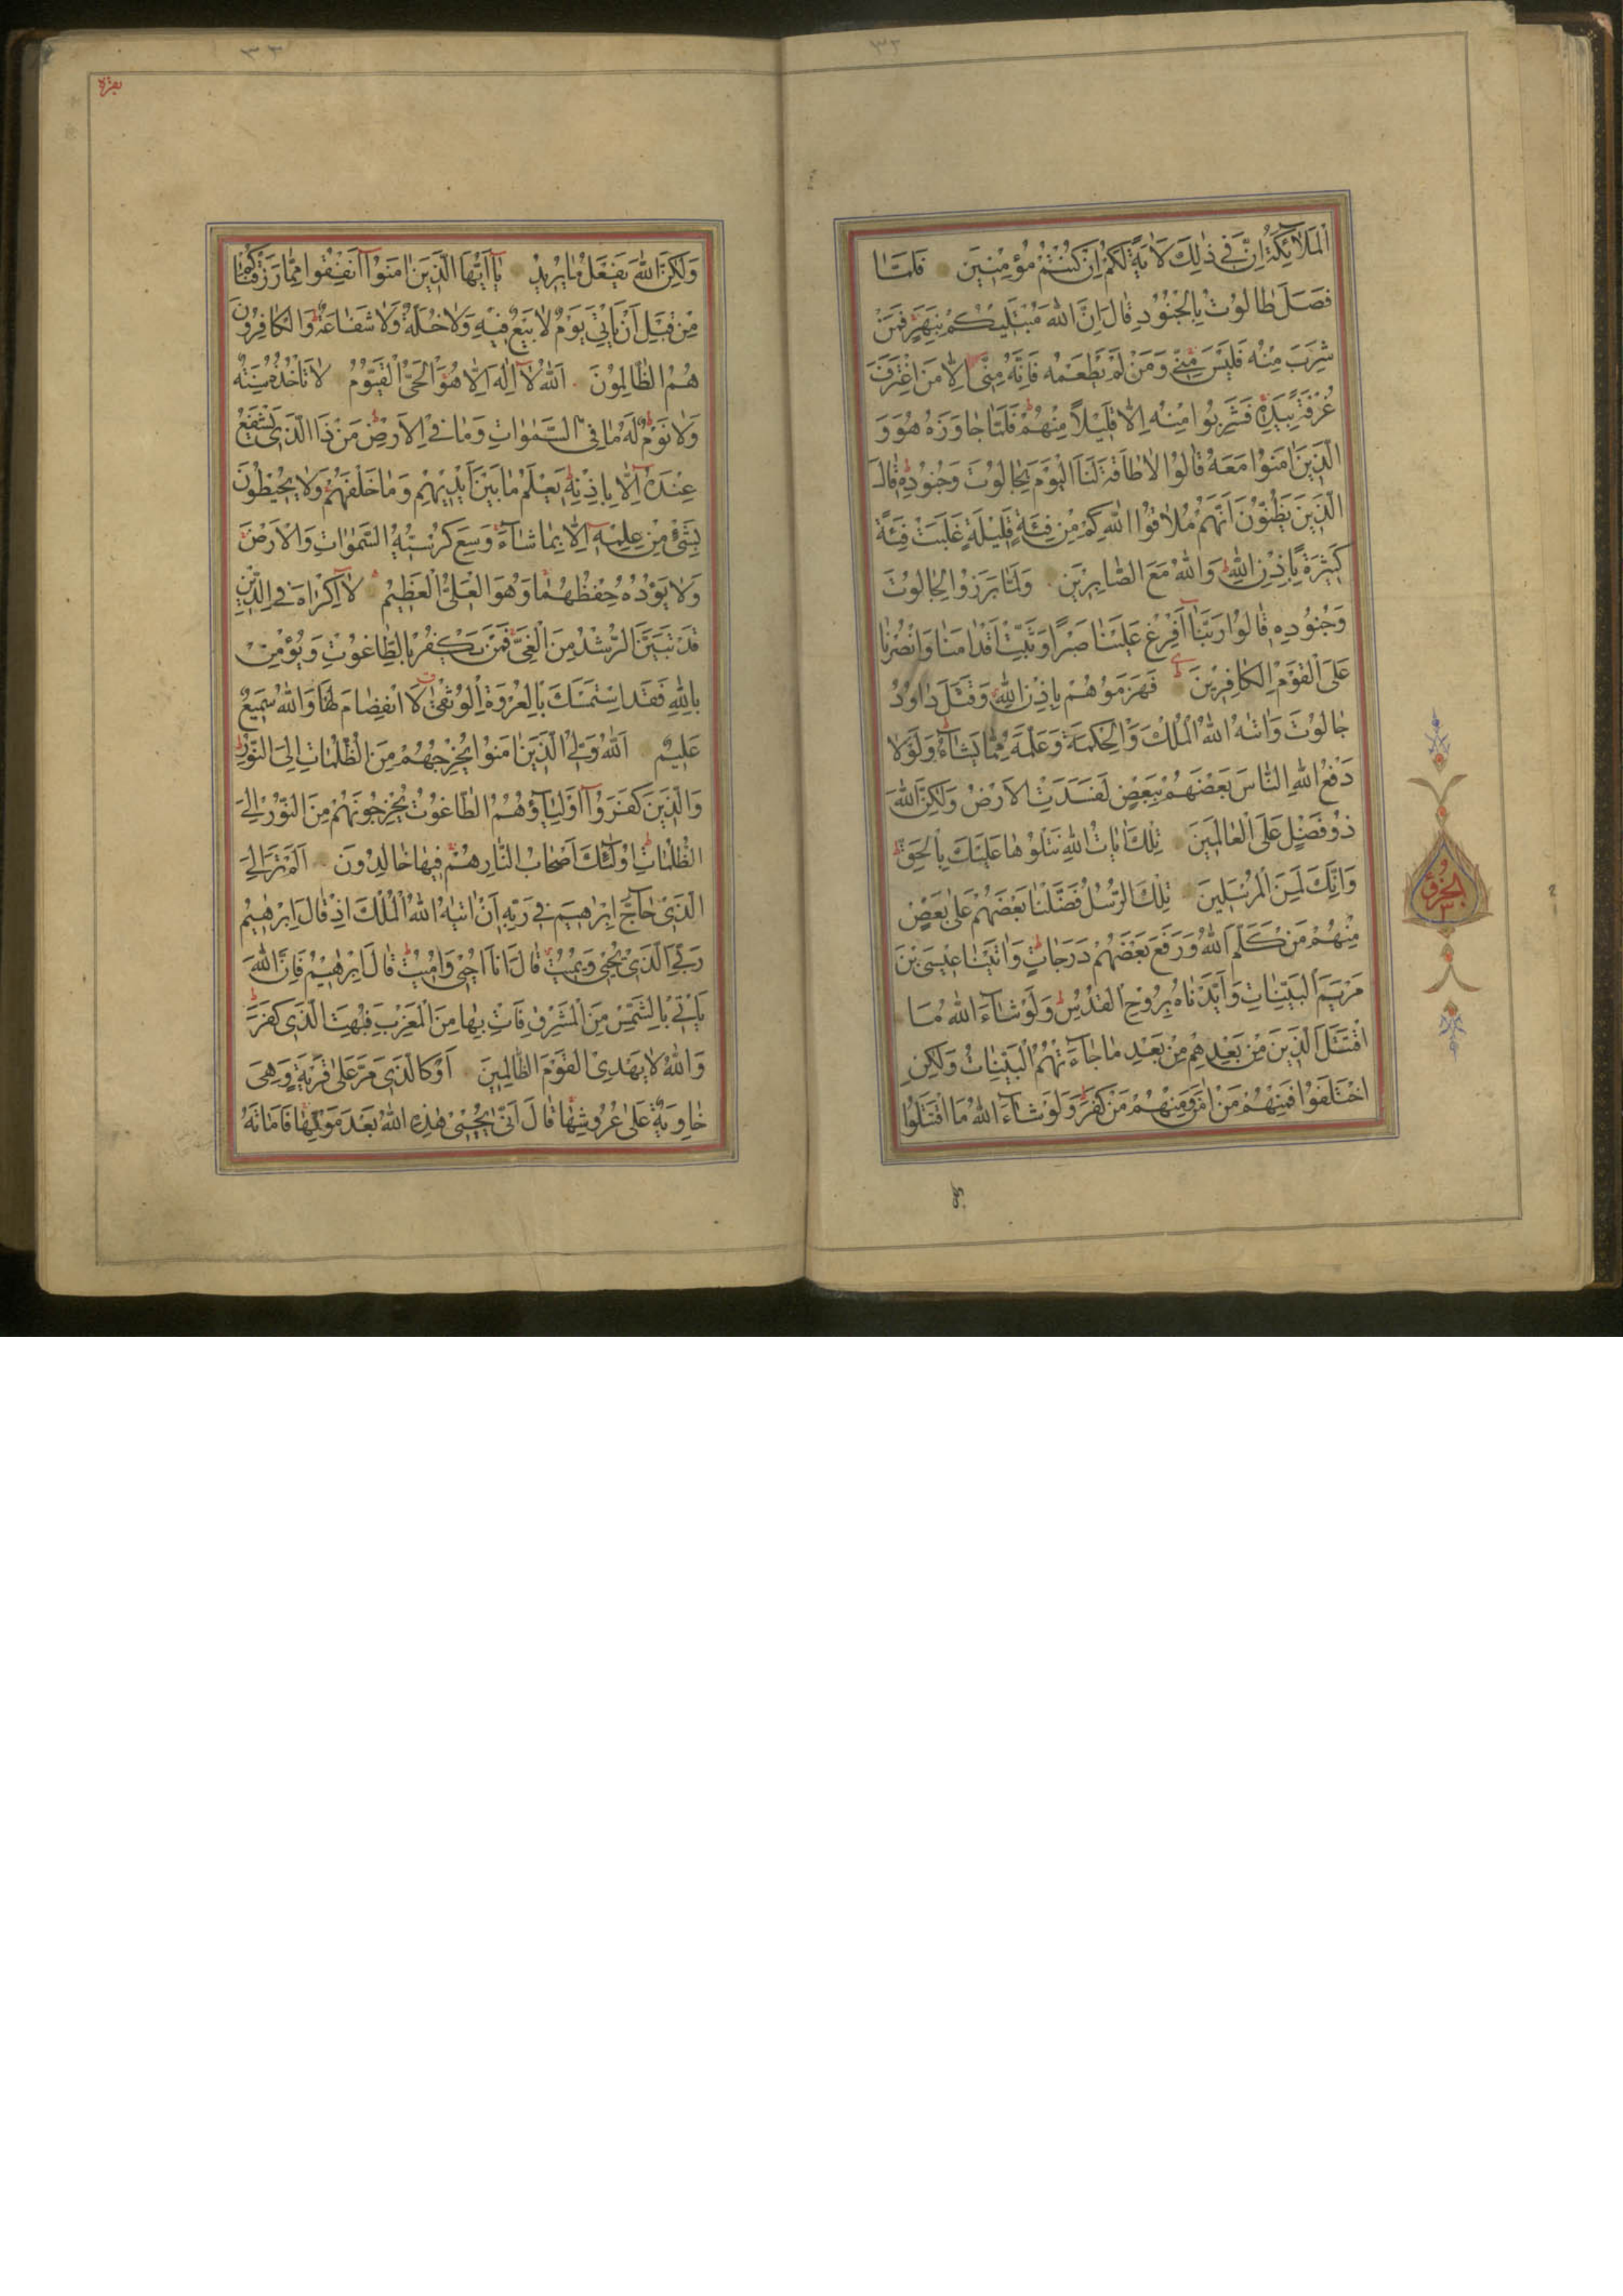 ٣٢
الْمَلَآئِكَةُ اِنَّ فِي ذٰلِكَ لَاٰيَةً لَكُمْ اِنْ كُنْتُمْ مُؤْمِنِينَ فَلَمَّا
فَصَلَ طَالُوتُ بِالْجُنُودِ قَالَ اِنَّ اللّٰهَ مُبْتَلِيكُمْ بِنَهَرٍ فَمَنْ
شَرِبَ مِنْهُ فَلَيْسَ مِنِّي وَمَنْ لَمْ يَطْعَمْهُ فَاِنَّهُ مِنِّي اِلَّا مَنِ اغْتَرَفَ
غُرْفَةً بِيَدِهِ فَشَرِبُوا مِنْهُ اِلَّا قَلِيلًا مِنْهُمْ فَلَمَّا جَاوَزَهُ هُوَ وَ
الَّذِينَ اٰمَنُوا مَعَهُ قَالُوا لَا طَاقَةَ لَنَا الْيَوْمَ بِجَالُوتَ وَجُنُودِهِ قَالَ
الَّذِينَ يَظُنُّونَ اَنَّهُمْ مُلَاقُوا اللّٰهِ كَمْ مِنْ فِئَةٍ قَلِيلَةٍ غَلَبَتْ فِئَةً
كَثِيرَةً بِاِذْنِ اللّٰهِ وَاللّٰهُ مَعَ الصَّابِرِينَ وَلَمَّا بَرَزُوا لِجَالُوتَ
وَجُنُودِهِ قَالُوا رَبَّنَآ اَفْرِغْ عَلَيْنَا صَبْرًا وَثَبِّتْ اَقْدَامَنَا وَانْصُرْنَا
عَلَى الْقَوْمِ الْكَافِرِينَ فَهَزَمُوهُمْ بِاِذْنِ اللّٰهِ وَقَتَلَ دَاوُدُ
جَالُوتَ وَاٰتٰهُ اللّٰهُ الْمُلْكَ وَالْحِكْمَةَ وَعَلَّمَهُ مِمَّا يَشَآءُ وَلَوْلَا
دَفْعُ اللّٰهِ النَّاسَ بَعْضَهُمْ بِبَعْضٍ لَفَسَدَتِ الْاَرْضُ وَلٰكِنَّ اللّٰهَ
ذُو فَضْلٍ عَلَى الْعَالَمِينَ تِلْكَ اٰيَاتُ اللّٰهِ نَتْلُوهَا عَلَيْكَ بِالْحَقِّ
وَاِنَّكَ لَمِنَ الْمُرْسَلِينَ تِلْكَ الرُّسُلُ فَضَّلْنَا بَعْضَهُمْ عَلٰى بَعْضٍ
مِنْهُمْ مَنْ كَلَّمَ اللّٰهُ وَرَفَعَ بَعْضَهُمْ دَرَجَاتٍ وَاٰتَيْنَا عِيسَى بْنَ
مَرْيَمَ الْبَيِّنَاتِ وَاَيَّدْنَاهُ بِرُوحِ الْقُدُسِ وَلَوْ شَآءَ اللّٰهُ مَا
اقْتَتَلَ الَّذِينَ مِنْ بَعْدِهِمْ مِنْ بَعْدِ مَا جَآءَتْهُمُ الْبَيِّنَاتُ وَلٰكِنِ
اخْتَلَفُوا فَمِنْهُمْ مَنْ اٰمَنَ وَمِنْهُمْ مَنْ كَفَرَ وَلَوْ شَآءَ اللّٰهُ مَا اقْتَتَلُوا
الجزؤ
٣
٣٣
بقرة
وَلٰكِنَّ اللّٰهَ يَفْعَلُ مَا يُرِيدُ يَآ اَيُّهَا الَّذِينَ اٰمَنُوآ اَنْفِقُوا مِمَّا رَزَقْنَاكُمْ
مِنْ قَبْلِ اَنْ يَاْتِيَ يَوْمٌ لَا بَيْعٌ فِيهِ وَلَا خُلَّةٌ وَلَا شَفَاعَةٌ وَالْكَافِرُونَ
هُمُ الظَّالِمُونَ اَللّٰهُ لَآ اِلٰهَ اِلَّا هُوَ الْحَيُّ الْقَيُّومُ لَا تَاْخُذُهُ سِنَةٌ
وَلَا نَوْمٌ لَهُ مَا فِي السَّمٰوَاتِ وَمَا فِي الْاَرْضِ مَنْ ذَا الَّذِي يَشْفَعُ
عِنْدَهُ اِلَّا بِاِذْنِهِ يَعْلَمُ مَا بَيْنَ اَيْدِيهِمْ وَمَا خَلْفَهُمْ وَلَا يُحِيطُونَ
بِشَيْءٍ مِنْ عِلْمِهِ اِلَّا بِمَا شَآءَ وَسِعَ كُرْسِيُّهُ السَّمٰوَاتِ وَالْاَرْضَ
وَلَا يَؤُدُهُ حِفْظُهُمَا وَهُوَ الْعَلِيُّ الْعَظِيمُ لَآ اِكْرَاهَ فِي الدِّينِ
قَدْ تَبَيَّنَ الرُّشْدُ مِنَ الْغَيِّ فَمَنْ يَكْفُرْ بِالطَّاغُوتِ وَيُؤْمِنْ
بِاللّٰهِ فَقَدِ اسْتَمْسَكَ بِالْعُرْوَةِ الْوُثْقٰى لَا انْفِصَامَ لَهَا وَاللّٰهُ سَمِيعٌ
عَلِيمٌ اَللّٰهُ وَلِيُّ الَّذِينَ اٰمَنُوا يُخْرِجُهُمْ مِنَ الظُّلُمَاتِ اِلَى النُّورِ
وَالَّذِينَ كَفَرُوآ اَوْلِيَآؤُهُمُ الطَّاغُوتُ يُخْرِجُونَهُمْ مِنَ النُّورِ اِلَى
الظُّلُمَاتِ اُولٰئِكَ اَصْحَابُ النَّارِ هُمْ فِيهَا خَالِدُونَ اَلَمْ تَرَ اِلَى
الَّذِي حَآجَّ اِبْرٰهِيمَ فِي رَبِّهِ اَنْ اٰتٰيهُ اللّٰهُ الْمُلْكَ اِذْ قَالَ اِبْرٰهِيمُ
رَبِّيَ الَّذِي يُحْيِي وَيُمِيتُ قَالَ اَنَا اُحْيِي وَاُمِيتُ قَالَ اِبْرٰهِيمُ فَاِنَّ اللّٰهَ
يَاْتِي بِالشَّمْسِ مِنَ الْمَشْرِقِ فَاْتِ بِهَا مِنَ الْمَغْرِبِ فَبُهِتَ الَّذِي كَفَرَ
وَاللّٰهُ لَا يَهْدِي الْقَوْمَ الظَّالِمِينَ اَوْ كَالَّذِي مَرَّ عَلٰى قَرْيَةٍ وَهِيَ
خَاوِيَةٌ عَلٰى عُرُوشِهَا قَالَ اَنّٰى يُحْيِي هٰذِهِ اللّٰهُ بَعْدَ مَوْتِهَا فَاَمَاتَهُ